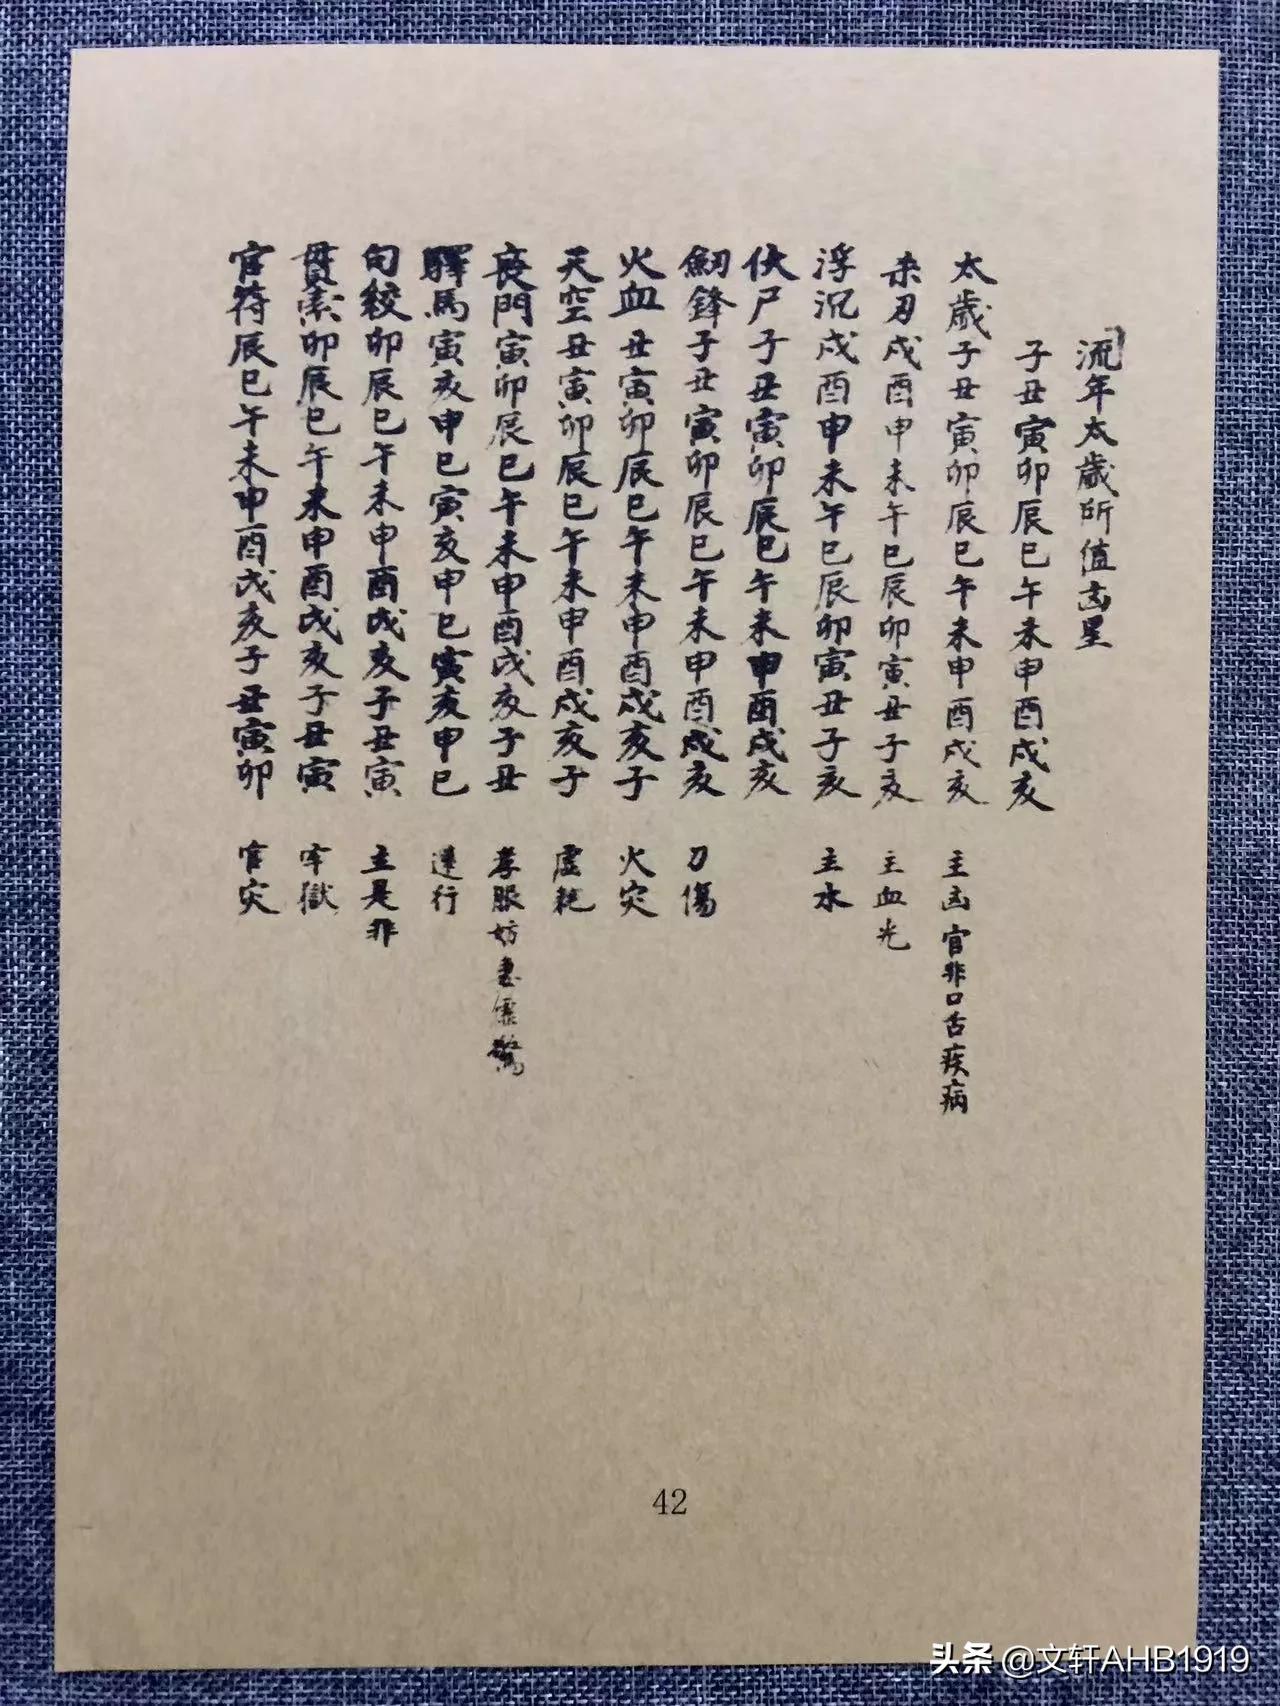 流年太歲所值凶星
子丑寅卯辰巳午未申酉戌亥
太歲子丑寅卯辰巳午未申酉戌亥 主凶官非口舌疾病
来刃戌酉申未午巳辰卯寅丑子亥 主血光
浮沉戌酉申未午巳辰卯寅丑子亥 主水
伏尸子丑寅卯辰巳午未申酉戌亥
劒鋒子丑寅卯辰巳午未申酉戌亥 刀傷
火血丑寅卯辰巳午未申酉戌亥子 火灾
天空丑寅卯辰巳午未申酉戌亥子 虛耗
喪門寅卯辰巳午未申酉戌亥子丑 孝服妨妻虛驚
驛馬寅亥申巳寅亥申巳寅亥申巳 遠行
勾絞卯辰巳午未申酉戌亥子丑寅 主是非
貫索卯辰巳午未申酉戌亥子丑寅 牢獄
官符辰巳午未申酉戌亥子丑寅卯 官灾
42
头条 @文轩AHB1919